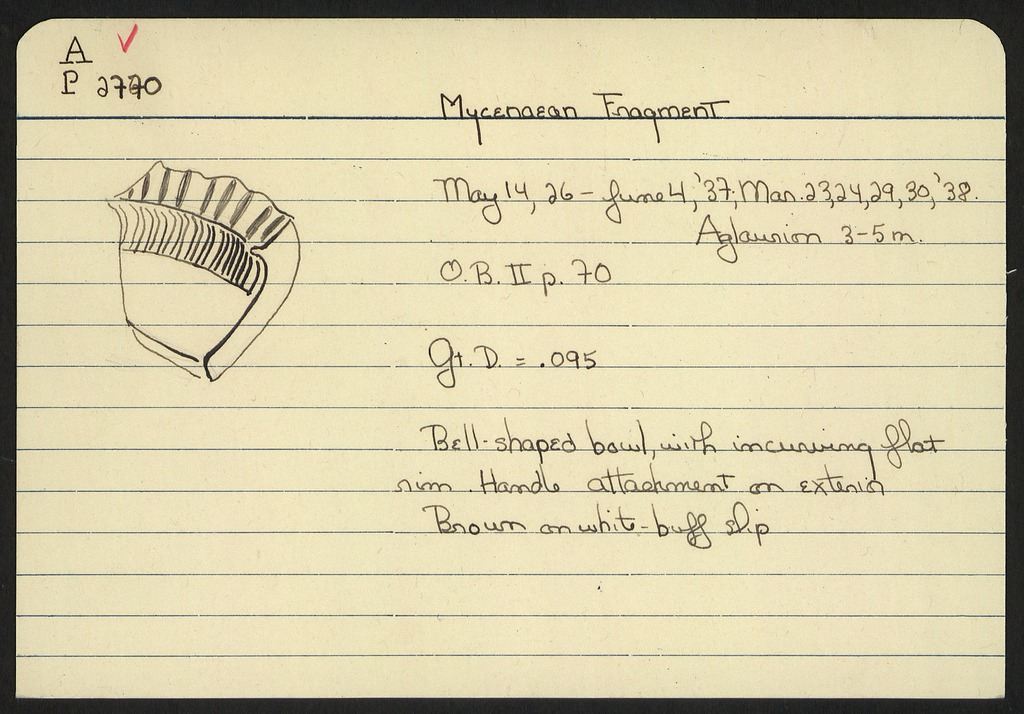 A ✓
P 2770
Mycenaean Fragment
May 14, 26 - June 4, '37; Mar. 23, 24, 29, 30, '38.
Aglaurion 3-5 m.
O.B. II p. 70
Gt. D. = .095
Bell-shaped bowl, with incurving flat
rim. Handle attachment on exterior
Brown on white-buff slip